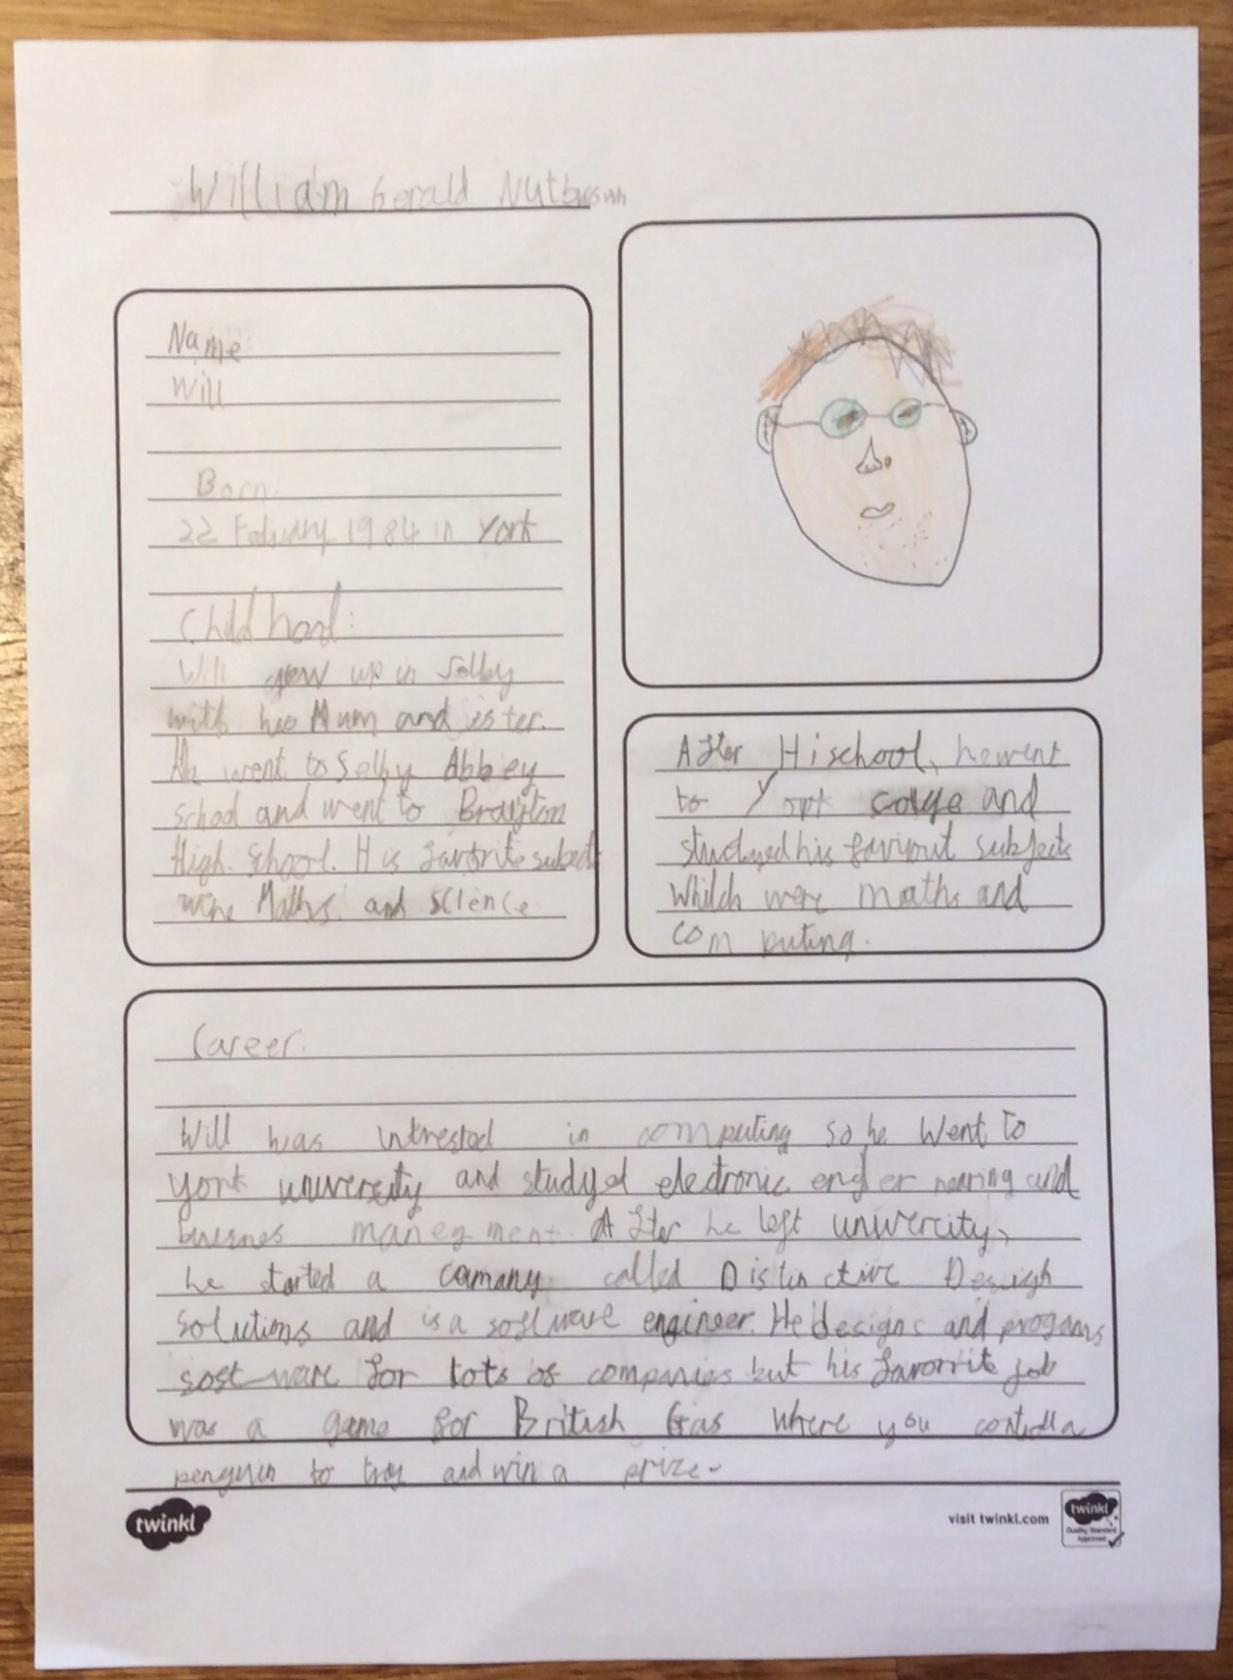 William Gerald
Name
Will
Born:
22 Febuary 1984 in York
Childhood:
Will grew up in Selby
with his Mum and sister.
He went to Selby Abbey
School and went to Brayton
High School. His favorite subjects
were Maths and science
After Hi school, he went
to York colge and
studyed his faviriout subjects
Whilch were maths and
computing.
Career:
Will was intrested in computing so he went to
york univercity and studyed electronic and
manegment. After he left univercity,
he started a camany called Distinctive Desigh
Solutions and is a software engineer. He designs and progams
sostware for lots of companies but his favorrite job
was a game for British Gas where you control a
penguin to try and win a prize.
twinkl
visit twinkl.com
twinkl
Quality Standard
Approved